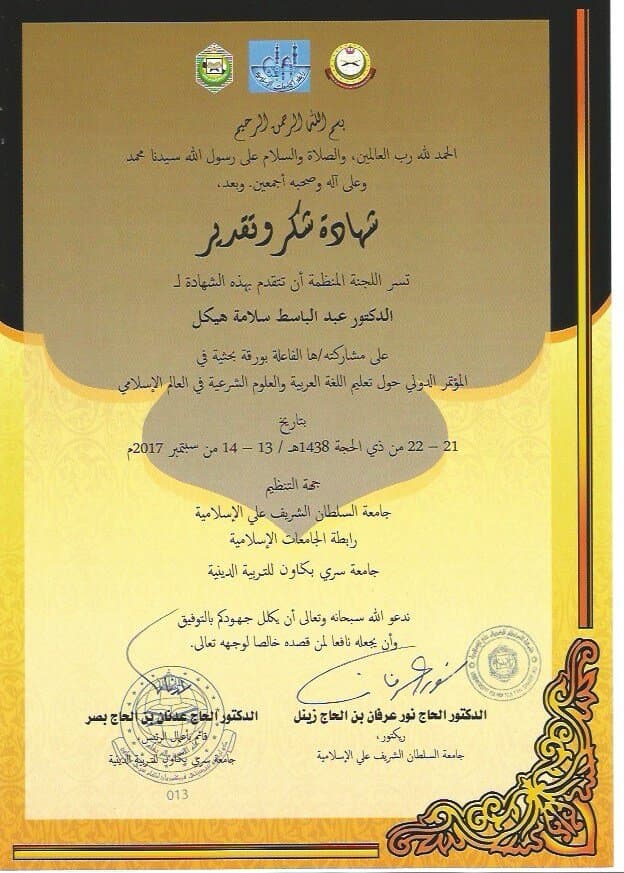 بسم الله الرحمن الرحيم
الحمد لله رب العالمين، والصلاة والسلام على رسول الله سيدنا محمد
وعلى آله وصحبه أجمعين. وبعد،
شهادة شكر وتقدير
تسر اللجنة المنظمة أن تتقدم بهذه الشهادة لـ
الدكتور عبد الباسط سلامة هيكل
على مشاركته/ها الفاعلة بورقة بحثية في
المؤتمر الدولي حول تعليم اللغة العربية والعلوم الشرعية في العالم الإسلامي
بتاريخ
21 – 22 من ذي الحجة 1438هـ / 13 – 14 من سبتمبر 2017م
جهة التنظيم
جامعة السلطان الشريف علي الإسلامية
رابطة الجامعات الإسلامية
جامعة سري بكاون للتربية الدينية
ندعو الله سبحانه وتعالى أن يكلل جهودكم بالتوفيق
وأن يجعله نافعا لمن قصده خالصا لوجهه تعالى.
الدكتور الحاج نور عرفان بن الحاج زينل
ريكتور،
جامعة السلطان الشريف علي الإسلامية
الدكتور الحاج عدنان بن الحاج بصر
قائم بأعمال الرئيس،
جامعة سري بكاون للتربية الدينية
013